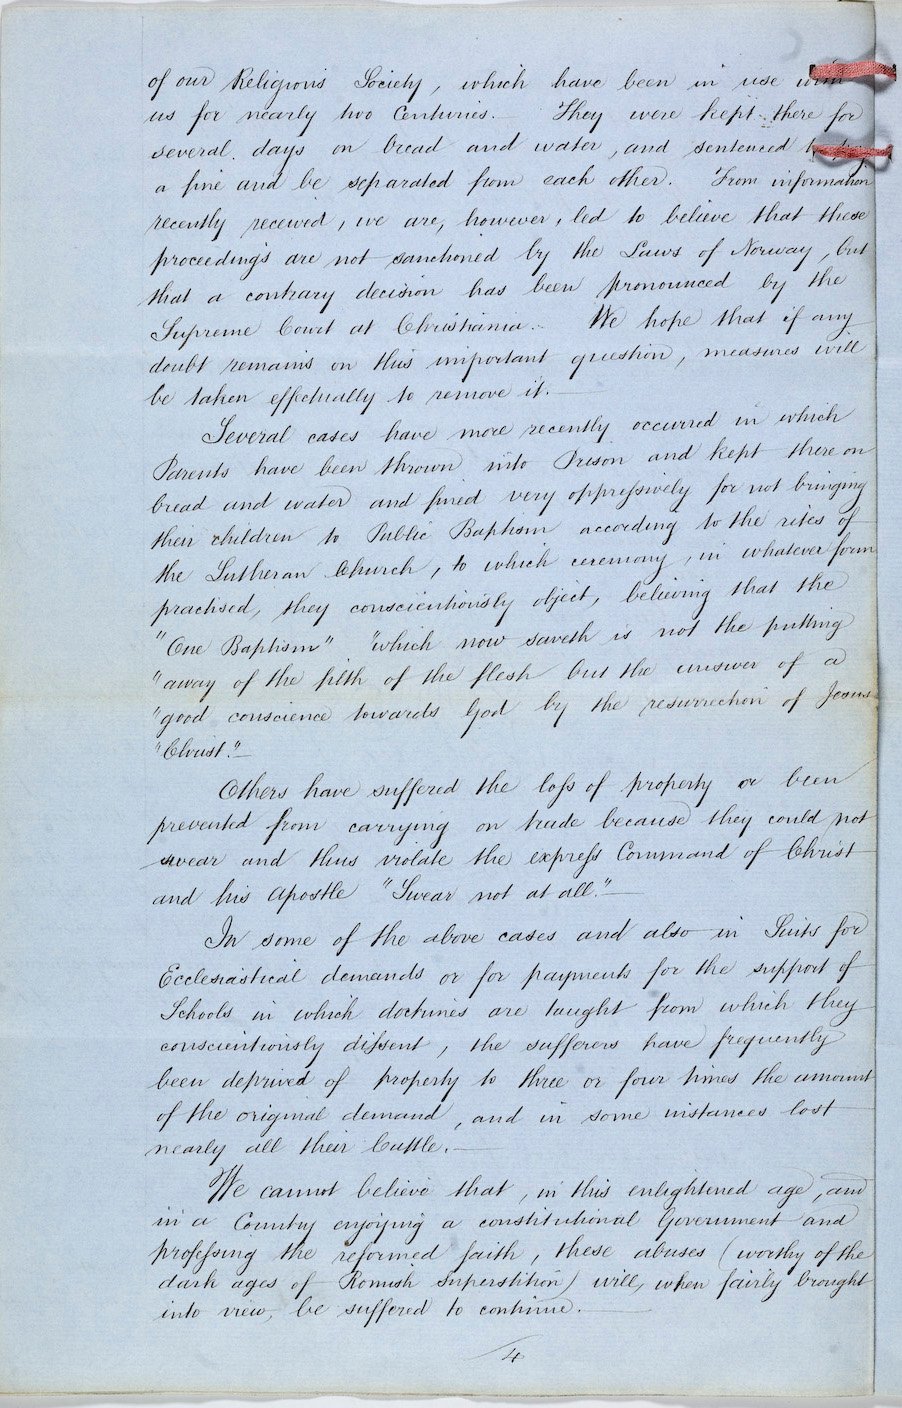 of our Religious Society, which have been in use with
us for nearly two Centuries.— They were kept there for
several days on bread and water, and sentenced to pay
a fine and be separated from each other. From information
recently received, we are, however, led to believe that these
proceedings are not sanctioned by the Laws of Norway, but
that a contrary decision has been pronounced by the
Supreme Court at Christiania.— We hope that if any
doubt remains on this important question, measures will
be taken effectually to remove it.—
Several cases have more recently occurred in which
Parents have been thrown into Prison and kept there on
bread and water and fined very oppressively for not bringing
their children to Public Baptism according to the rites of
the Lutheran Church, to which ceremony, in whatever form
practised, they conscientiously object, believing that the
"One Baptism" "which now saveth is not the putting
"away of the filth of the flesh but the answer of a
"good conscience towards God by the resurrection of Jesus
"Christ."—
Others have suffered the loss of property or been
prevented from carrying on trade because they could not
swear and thus violate the express Command of Christ
and his Apostle "Swear not at all."—
In some of the above cases and also in Suits for
Ecclesiastical demands or for payments for the support of
Schools in which doctrines are taught from which they
conscientiously dissent, the sufferers have frequently
been deprived of property to three or four times the amount
of the original demand, and in some instances lost
nearly all their Cattle.—
We cannot believe that, in this enlightened age, and
in a Country enjoying a constitutional Government and
professing the reformed faith, these abuses (worthy of the
dark ages of Romish superstition) will, when fairly brought
into view, be suffered to continue.—
4